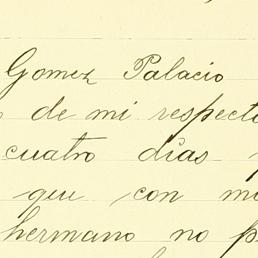 Gomez Palacio
de mi respecto
cuatro días
que con mi
hermano no